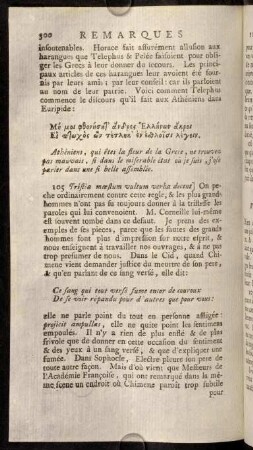 300 REMARQUES
insoutenables. Horace fait assurément allusion aux
harangues que Telephus & Pelée faisoient pour obliger
les Grecs à leur donner du secours. Les principaux
articles de ces harangues leur avoient été fournis
par leurs amis & par leur conseil: car ils parloient
au nom de leur patrie. Voici comment Telephus
commence le discours qu'il fait aux Athéniens dans
Euripide:
Athéniens, qui êtes la fleur de la Grece, ne trouvez
pas mauvais, si dans le miserable état où je suis, j'ose
parler dans une si belle assemblée.
105 Tristia mœstum vultum verba decent] On peche
ordinairement contre cette regle, & les plus grands
hommes n'ont pas sû toujours donner à la tristesse les
paroles qui lui convenoient. M. Corneille lui-même
est souvent tombé dans ce defaut. Je prens des exemples
de ses pieces, parce que les fautes des grands
hommes font plus d'impression sur notre esprit, &
nous enseignent à travailler nos ouvrages, & à ne pas
trop presumer de nous. Dans le Cid, quand Chimene
vient demander justice du meurtre de son pere,
& qu'en parlant de ce sang versé, elle dit:
Ce sang qui tout versé fume encor de couroux
De se voir répandu pour d'autres que pour vous:
elle ne parle point du tout en personne affligée:
projicit ampullas, elle ne quite point les sentimens
empoulés. Il n'y a rien de plus enflé & de plus
frivole que de donner en cette occasion du sentiment
& des yeux à un sang versé, & que d'expliquer une
fumée. Dans Sophocle, Electre pleure son pere de
toute autre façon. Mais d'où vient que Messieurs de
l'Académie Françoise, qui ont remarqué dans la même
scene un endroit où Chimene paroît trop subtile
pour